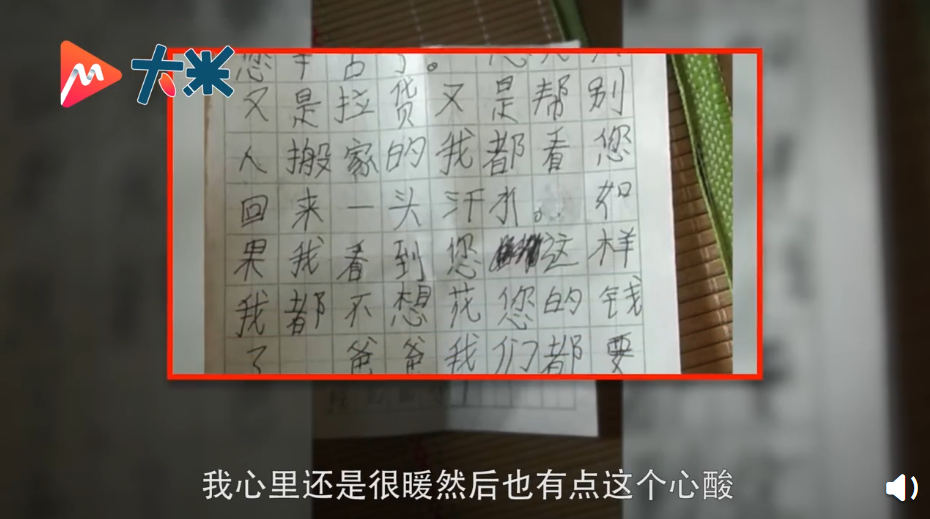 大米
您辛苦了。
又是拉货又是帮别
人搬家的我都看您
回来一头汗水。如
果我看到您这样
我都不想花您的钱
了 爸爸我们都要
我心里还是很暖然后也有点这个心酸